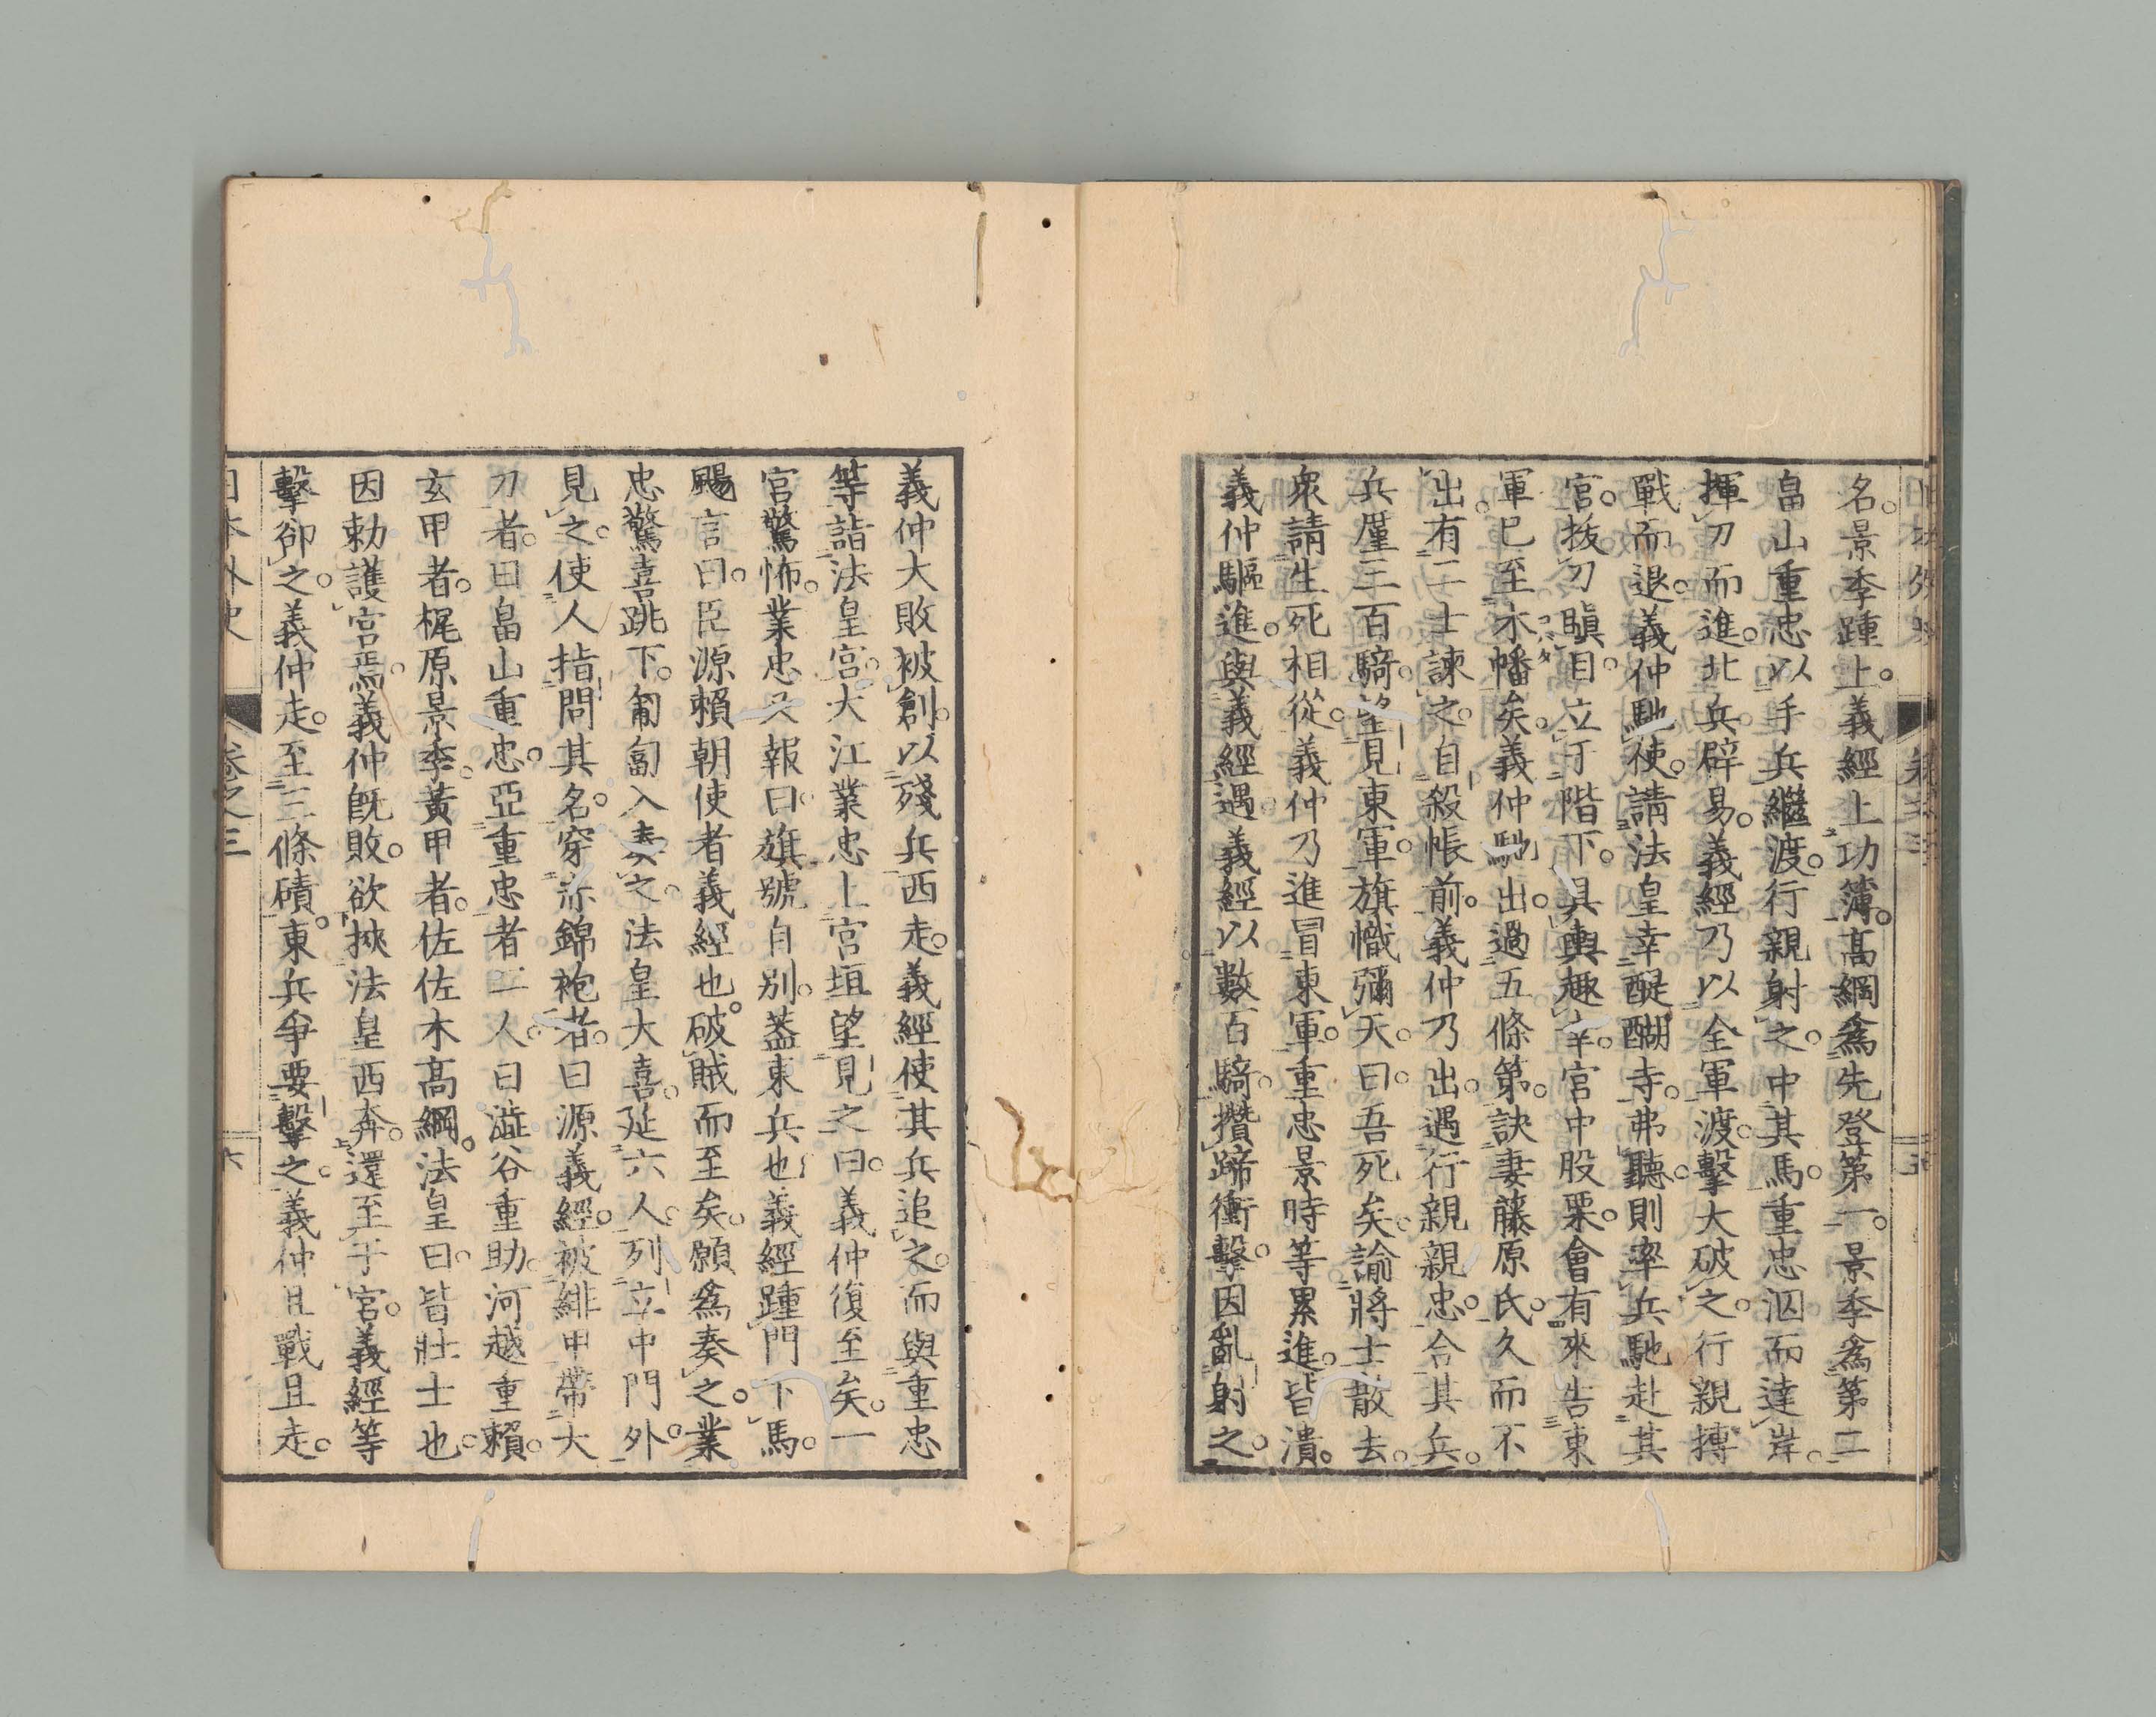 名。景季踵上。義經上功簿。高綱爲先登第一。景季爲第二
畠山重忠以手兵繼渡。行親射之。中其馬。重忠泅而達岸。
揮刀而進。北兵辟易。義經乃以全軍渡。擊大破之。行親搏
戰而退。義仲馳使。請法皇幸醍醐寺。弗聽。則率兵馳赴其
宮。拔刀瞋目。立于階下。具輿趣幸。宮中股栗。會有來告東
軍已至木幡矣。義仲馳出。過五條第。訣妻藤原氏。久而不
出。有二士諫之。自殺帳前。義仲乃出。遇行親親忠。合其兵。
兵僅三百騎。望見東軍。旗幟彌天。曰。吾死矣。諭將士散去。
衆請生死相從。義仲乃進冒東軍。重忠景時等累進。皆潰。
義仲驅進。與義經遇。義經以數百騎。攢蹄衝擊。因亂射之。
義仲大敗被創。以殘兵西走。義經使其兵追之。而與重忠
等詣法皇宮。大江業忠上宮垣望見之。曰。義仲復至矣。一
宮驚怖。業忠又報曰。旗號自別。蓋東兵也。義經踵門下馬。
颺言曰。臣源賴朝使者義經也。破賊而至矣。願爲奏之。業
忠驚喜跳下。匍匐入奏之。法皇大喜。延六人。列立中門外。
見之。使人指問其名。穿赤錦袍者。曰源義經。被緋甲帶大
刀者。曰畠山重忠。亞重忠者二人。曰澁谷重助。河越重賴。
玄甲者。梶原景季。黃甲者。佐佐木高綱。法皇曰。皆壯士也。
因勅護宮焉。義仲旣敗。欲挾法皇西奔。還至于宮。義經等
擊卻之。義仲走。至三條磧。東兵爭要擊之。義仲且戰且走。
日本外史 卷之三 六